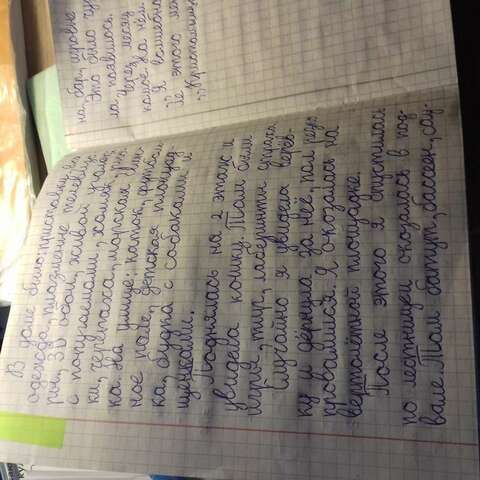 В доме было: приставки, вся
одежда, плазменные телевизо-
ры, 3D обои, живой уголок
с попугаями, хомяк, рыб-
ки, черепаха, морская свин-
ка. На улице: каток, футболь-
ное поле, детская площад-
ка, будка с собаками и
щенками.
Поднялась на 2 этаж и
увидела кошку. Там были
игры, тир, лаберинты страха
Случайно я увидела верёв-
ку и дёрнула за неё, пол резко
провалился. Я оказалась на
вертолётной площадке.
После этого я спустилась
по лестнице и оказалась в под-
вале. Там батут, бассеен, сау-
на, бар, игровые
Это было
ла появилось.
Через месяц
на нём.
„Я
этого